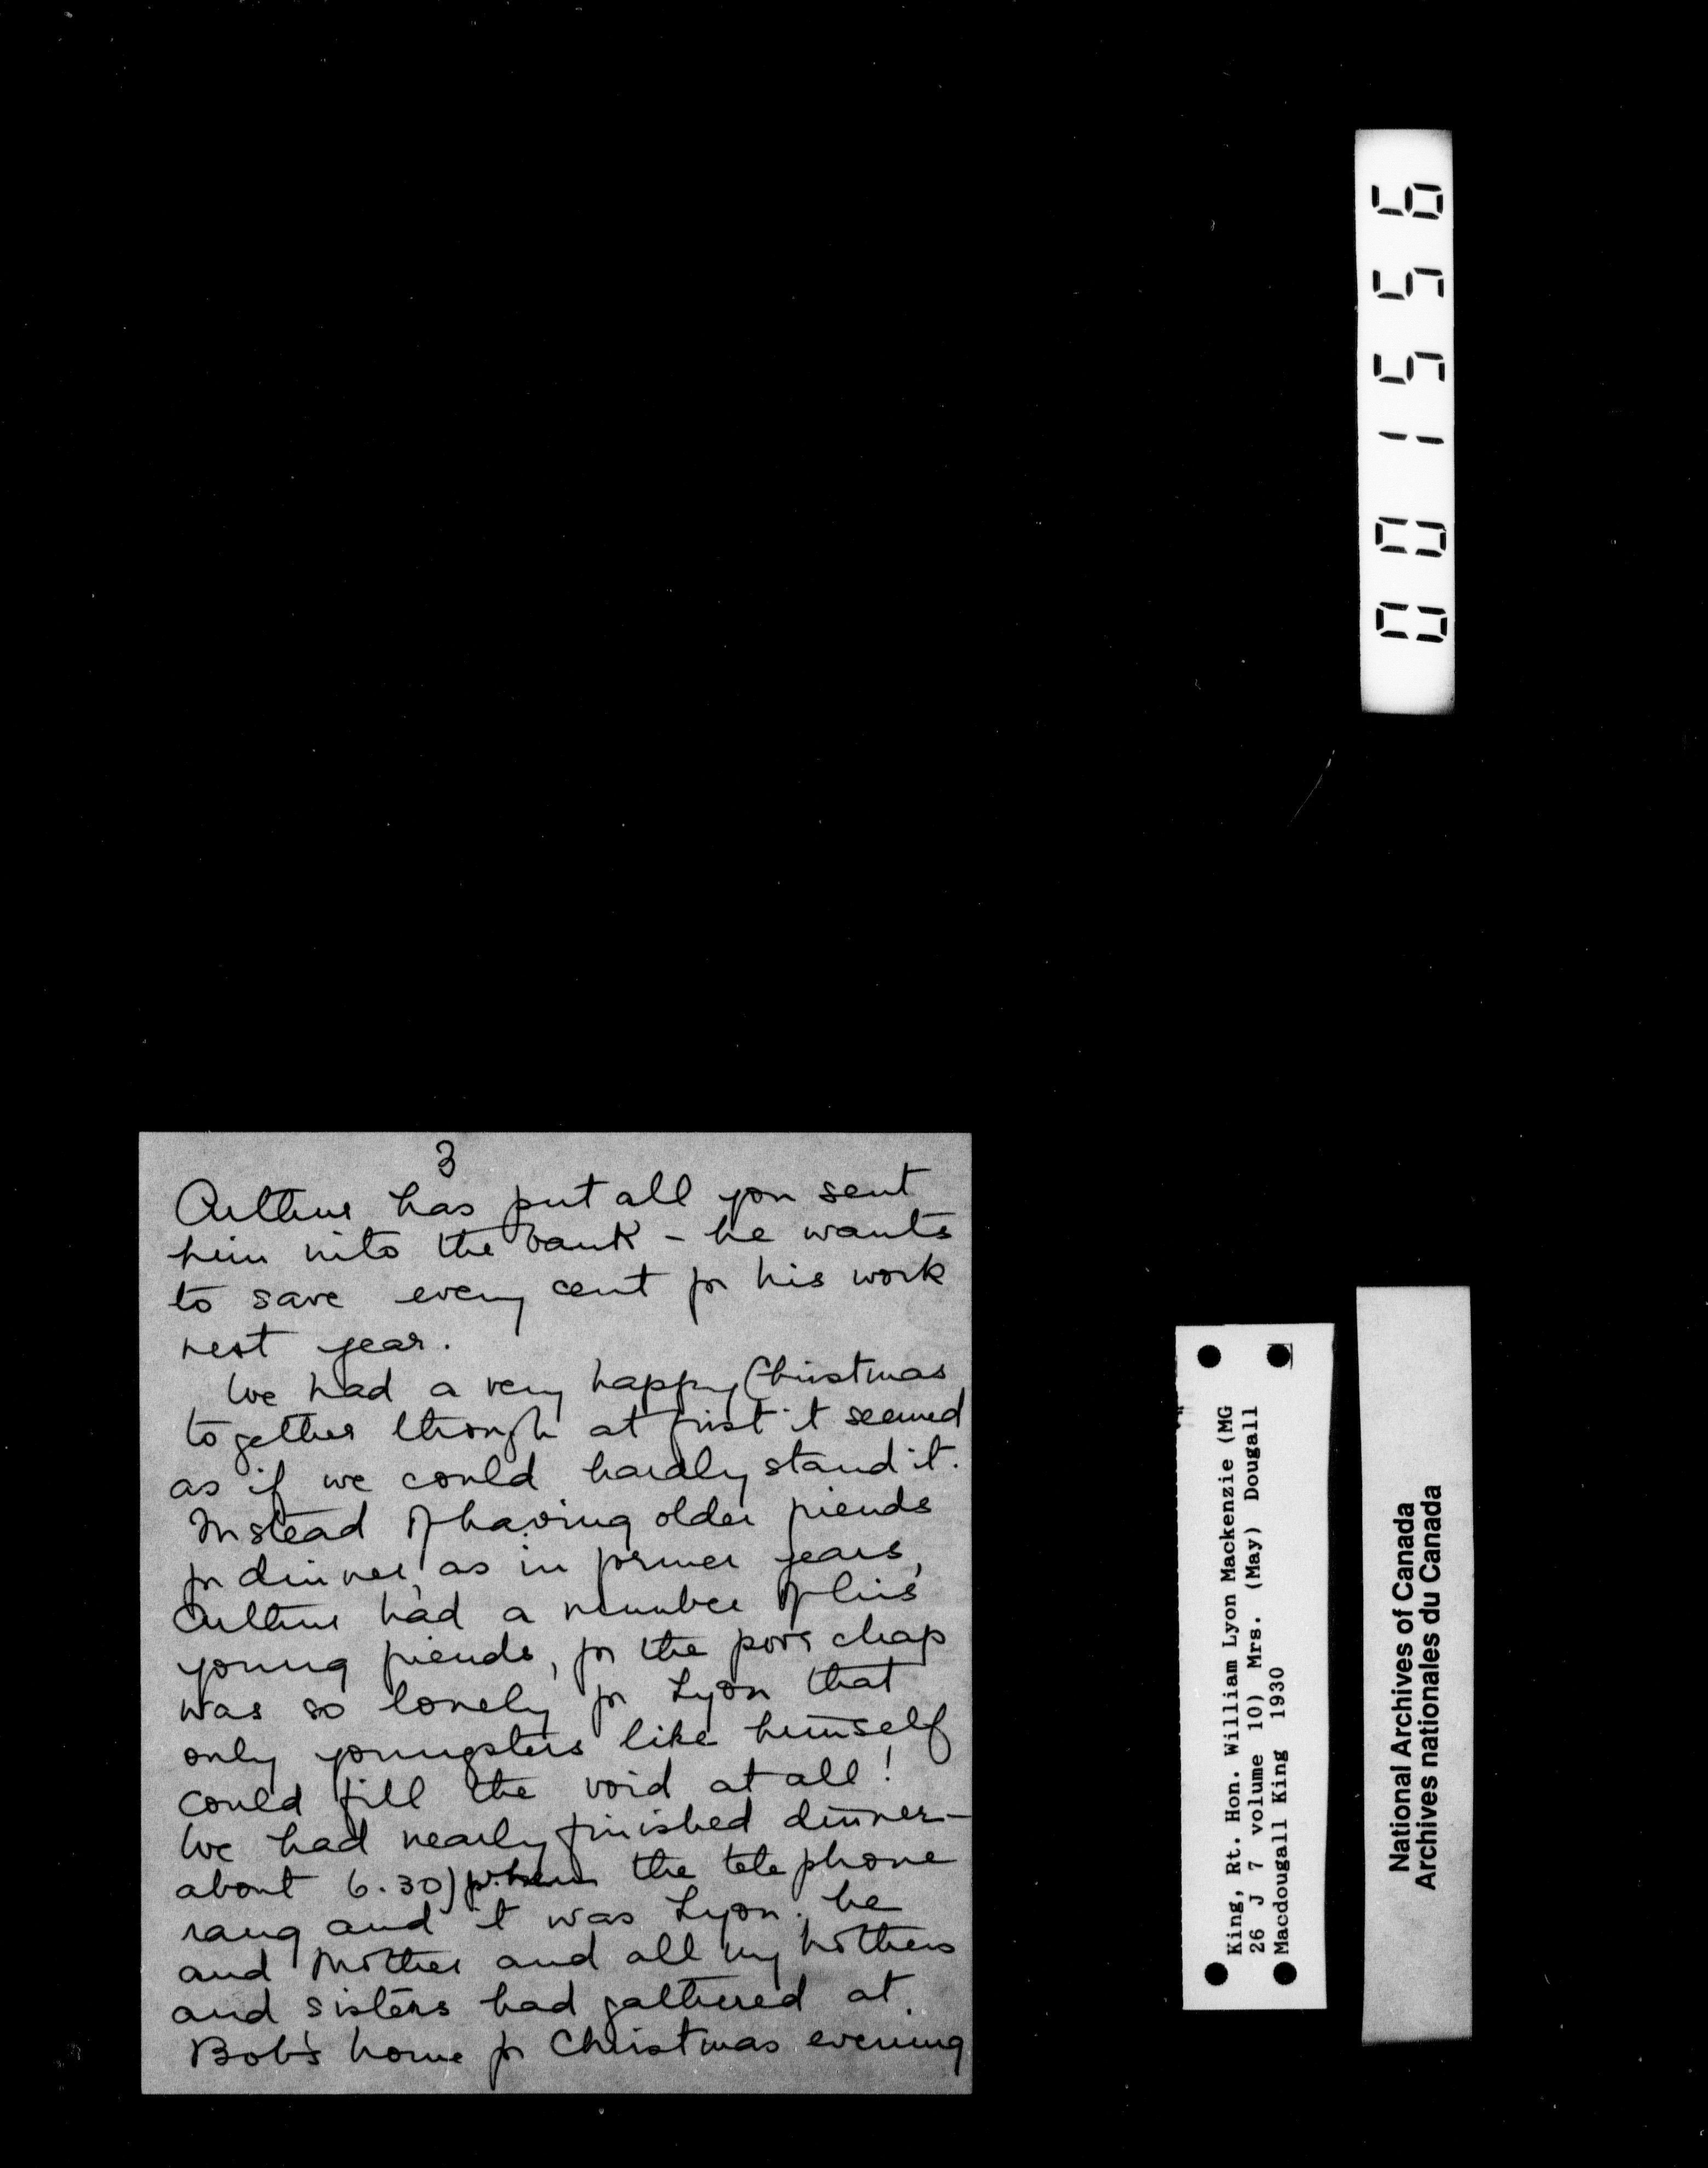 3
Arthur has put all you sent
him into the bank - he wants
to save every cent for his work
next year.
We had a very happy Christmas
together though at first it seemed
as if we could hardly stand it.
Instead of having older friends
for dinner, as in former years,
Arthur had a number of his
young friends, for the poor chap
was so lonely for Lyon that
only youngsters like himself
could fill the void at all!
We had nearly finished dinner -
about 6.30) when the telephone
rang and it was Lyon; he
and Mother and all my brothers
and sisters had gathered at
Bob's home for Christmas evening
001556
King, Rt. Hon. William Lyon Mackenzie (MG
26 J 7 volume 10) Mrs. (May) Dougall
Macdougall King 1930
National Archives of Canada
Archives nationales du Canada